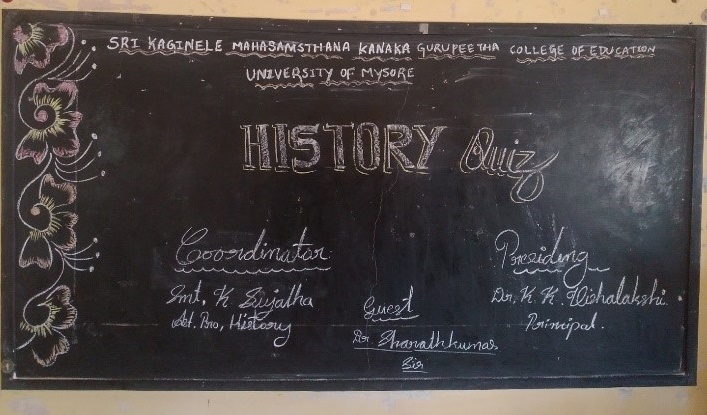 SRI KAGINELE MAHASAMSTHANA KANAKA GURUPEETHA COLLEGE OF EDUCATION
UNIVERSITY OF MYSORE
HISTORY Quiz
Coordinator
Smt, K Sujatha
Ast. Pro, History
Guest
Dr Sharathkumar
Sir
Presiding
Dr, K. K. Vishalakshi.
Principal.